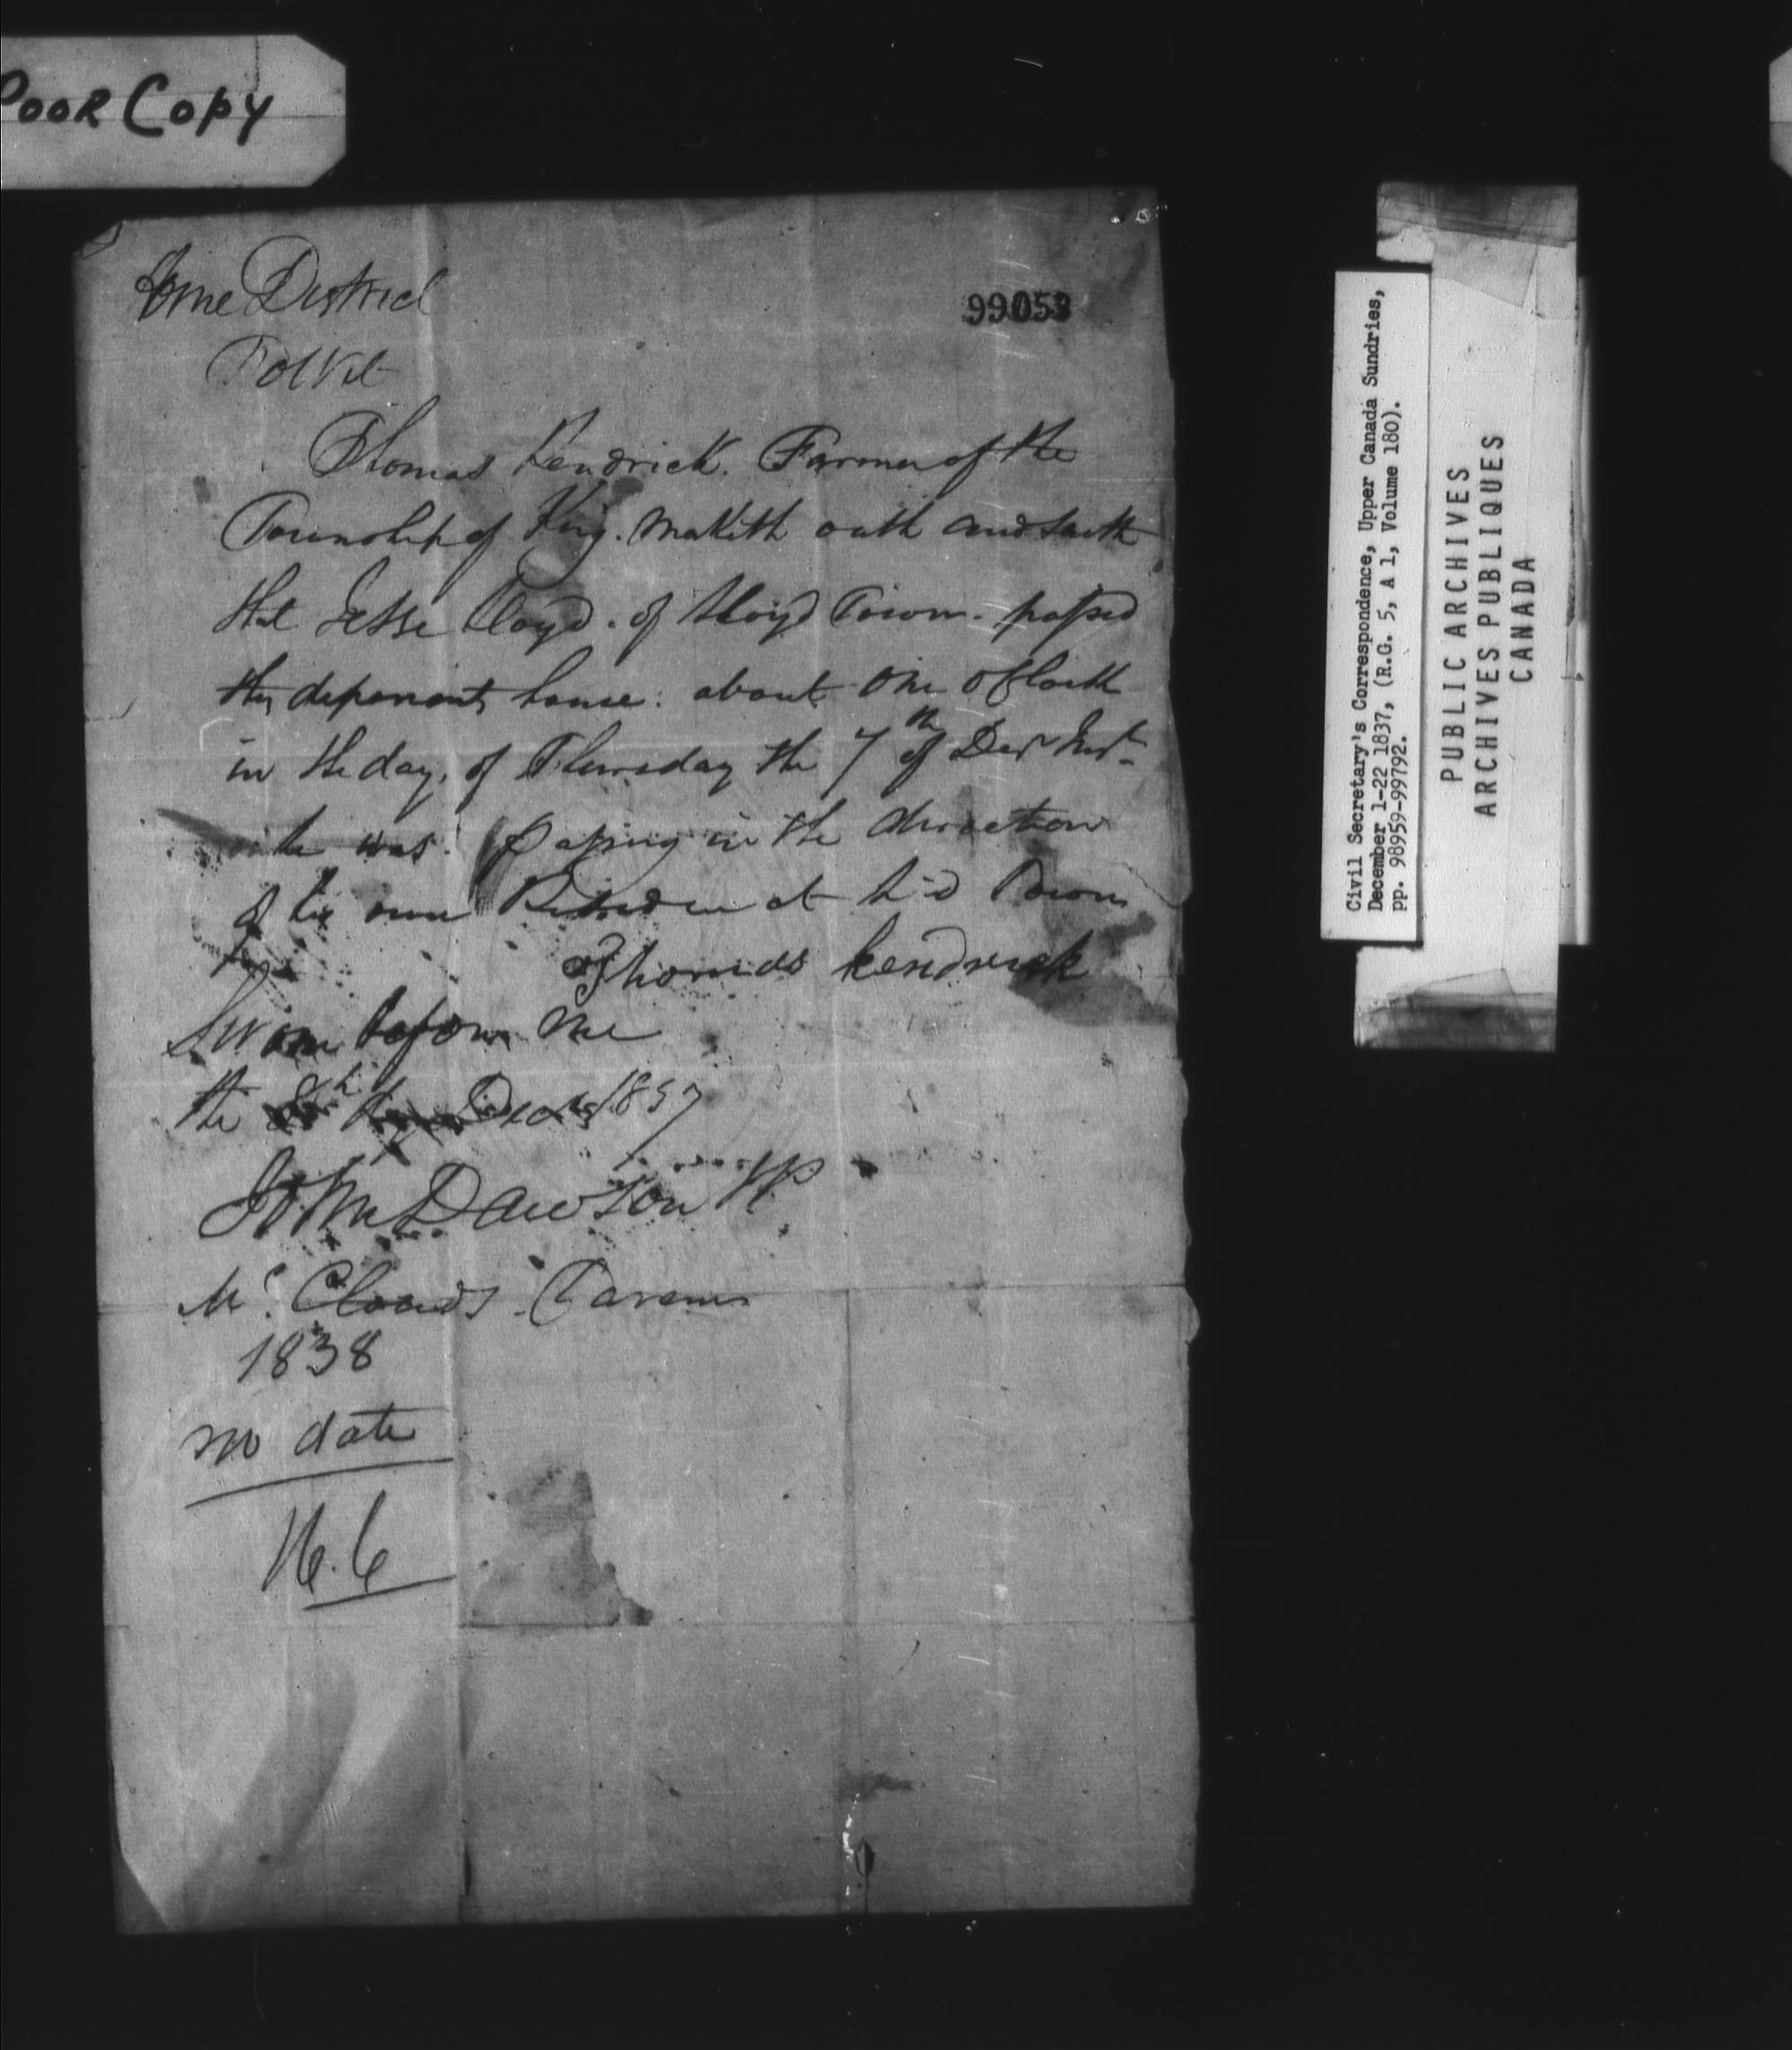 Poor Copy
Home District
To Wit
99053
Thomas Kendrick. Farmer of the
Township of King. Maketh oath and saith
that Jesse Lloyd. of Lloyd Town. passed
this deponants house: about One oClock
in the day, of Thursday the 7th of Decr Inst
he was. passing in the direction
of his own Residence at Ld Town
Thomas Kendrick
Sworn before me
the 8th Decr 1837
John Dawson JP
Mc. Clouds. Tavern
1838
no date
16.6
Civil Secretary's Correspondence, Upper Canada Sundries,
December 1-22 1837, (R.G. 5, A 1, Volume 180).
pp. 98959-99792.
PUBLIC ARCHIVES
ARCHIVES PUBLIQUES
CANADA